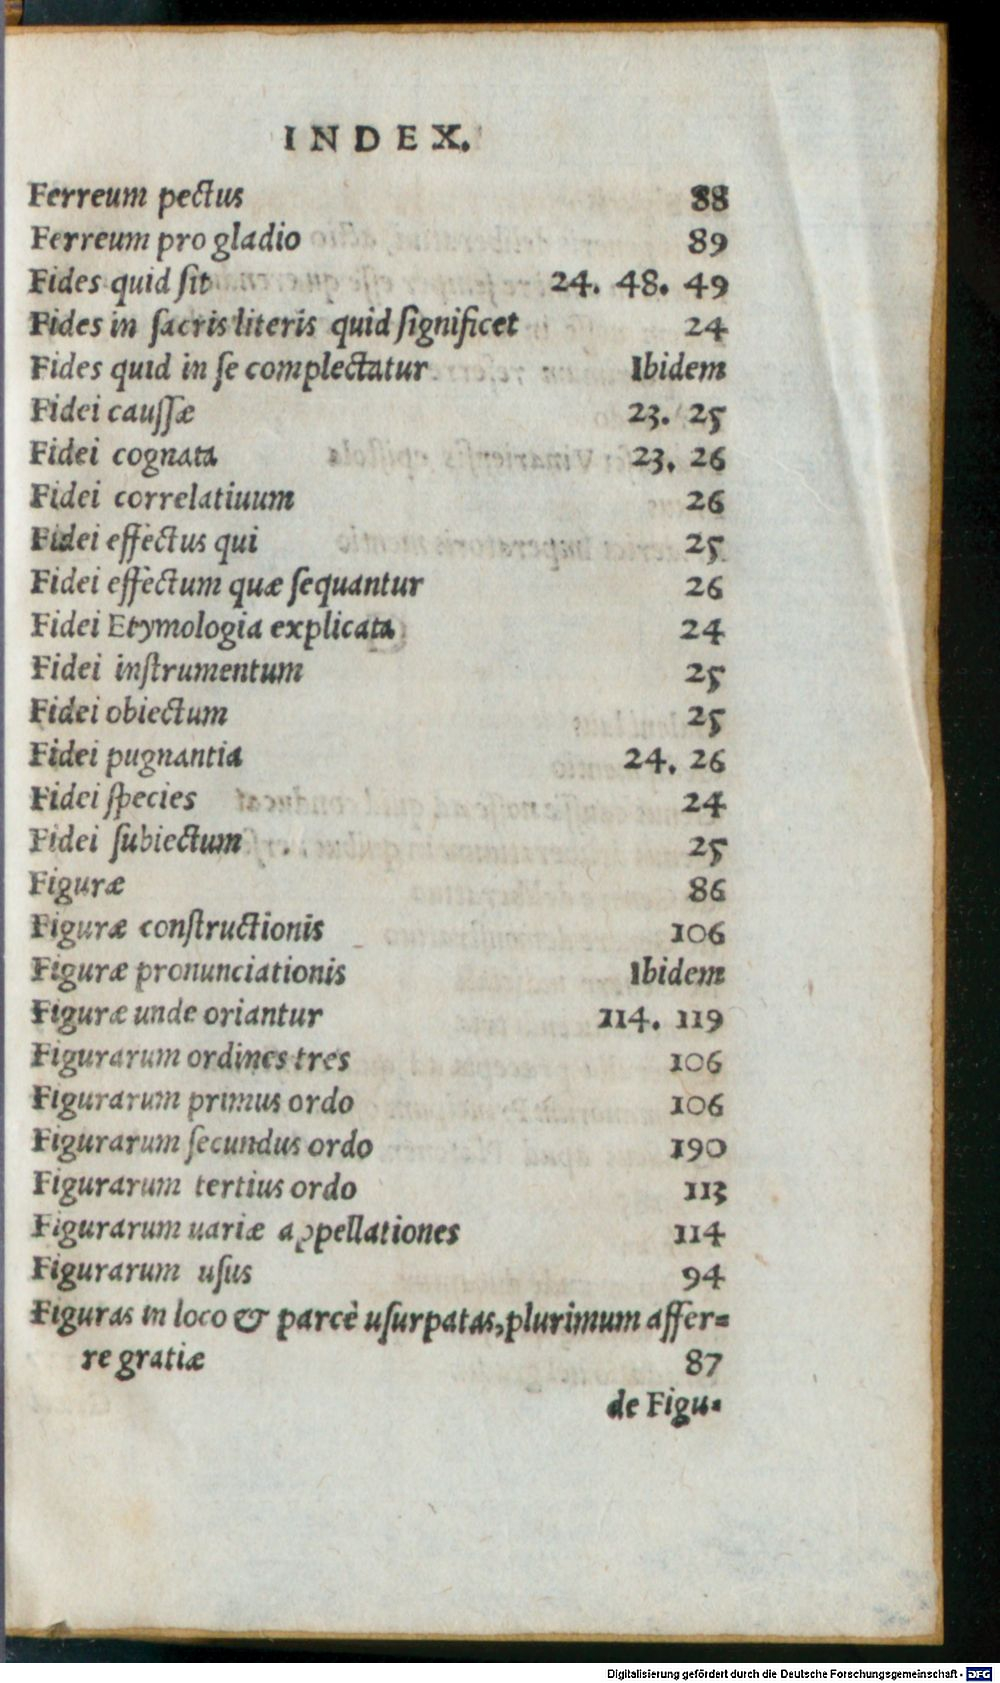 INDEX.
Ferreum pectus 88
Ferreum pro gladio 89
Fides quid ſit 24. 48. 49
Fides in ſacris literis quid ſignificet 24
Fides quid in ſe complectatur Ibidem
Fidei cauſſæ 23. 25
Fidei cognata 23. 26
Fidei correlatiuum 26
Fidei effectus qui 25
Fidei effectum quæ ſequantur 26
Fidei Etymologia explicata 24
Fidei inſtrumentum 25
Fidei obiectum 25
Fidei pugnantia 24. 26
Fidei ſpecies 24
Fidei ſubiectum 25
Figuræ 86
Figuræ conſtructionis 106
Figuræ pronunciationis Ibidem
Figuræ unde oriantur 114. 119
Figurarum ordines tres 106
Figurarum primus ordo 106
Figurarum ſecundus ordo 190
Figurarum tertius ordo 113
Figurarum uariæ appellationes 114
Figurarum uſus 94
Figuras in loco & parcè uſurpatas, plurimum affer=
re gratiæ 87
de Figu=
Digitalisierung gefördert durch die Deutsche Forschungsgemeinschaft - DFG